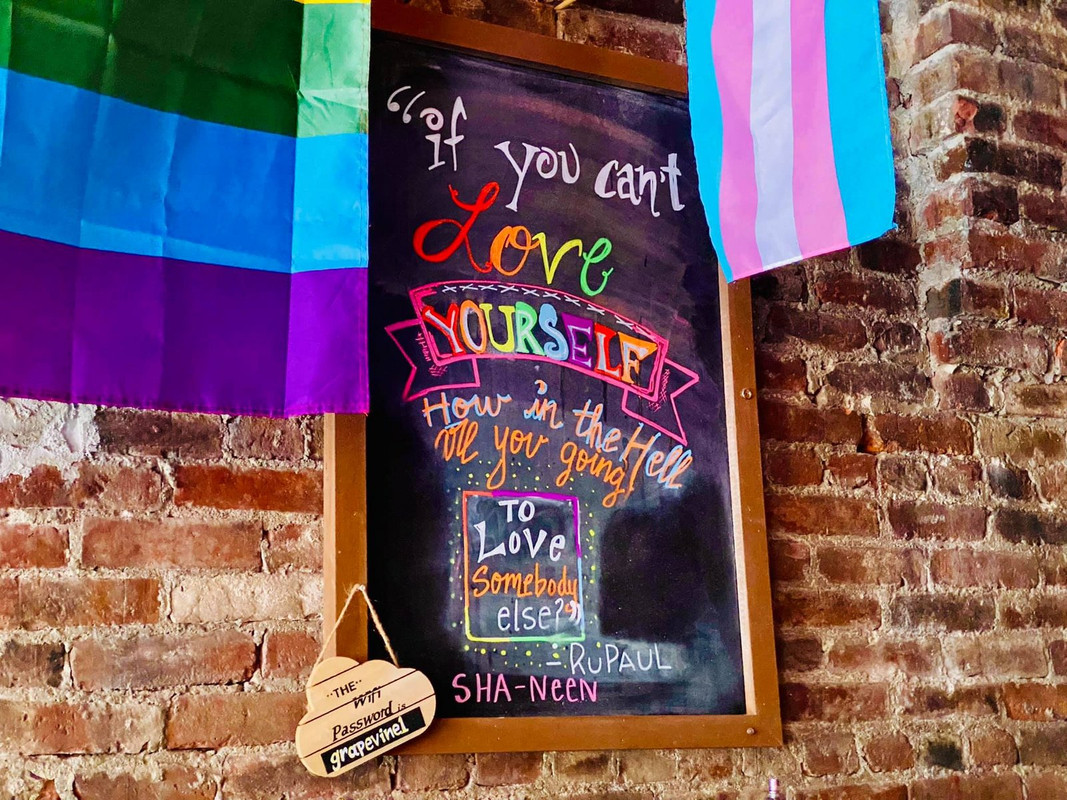 "if
you can't
Love
YOURSELF
How in the Hell
are you going
TO
Love
Somebody
else?"
- RuPAUL
SHA-NeeN
"THE"
Wifi
Password is
grapevine1